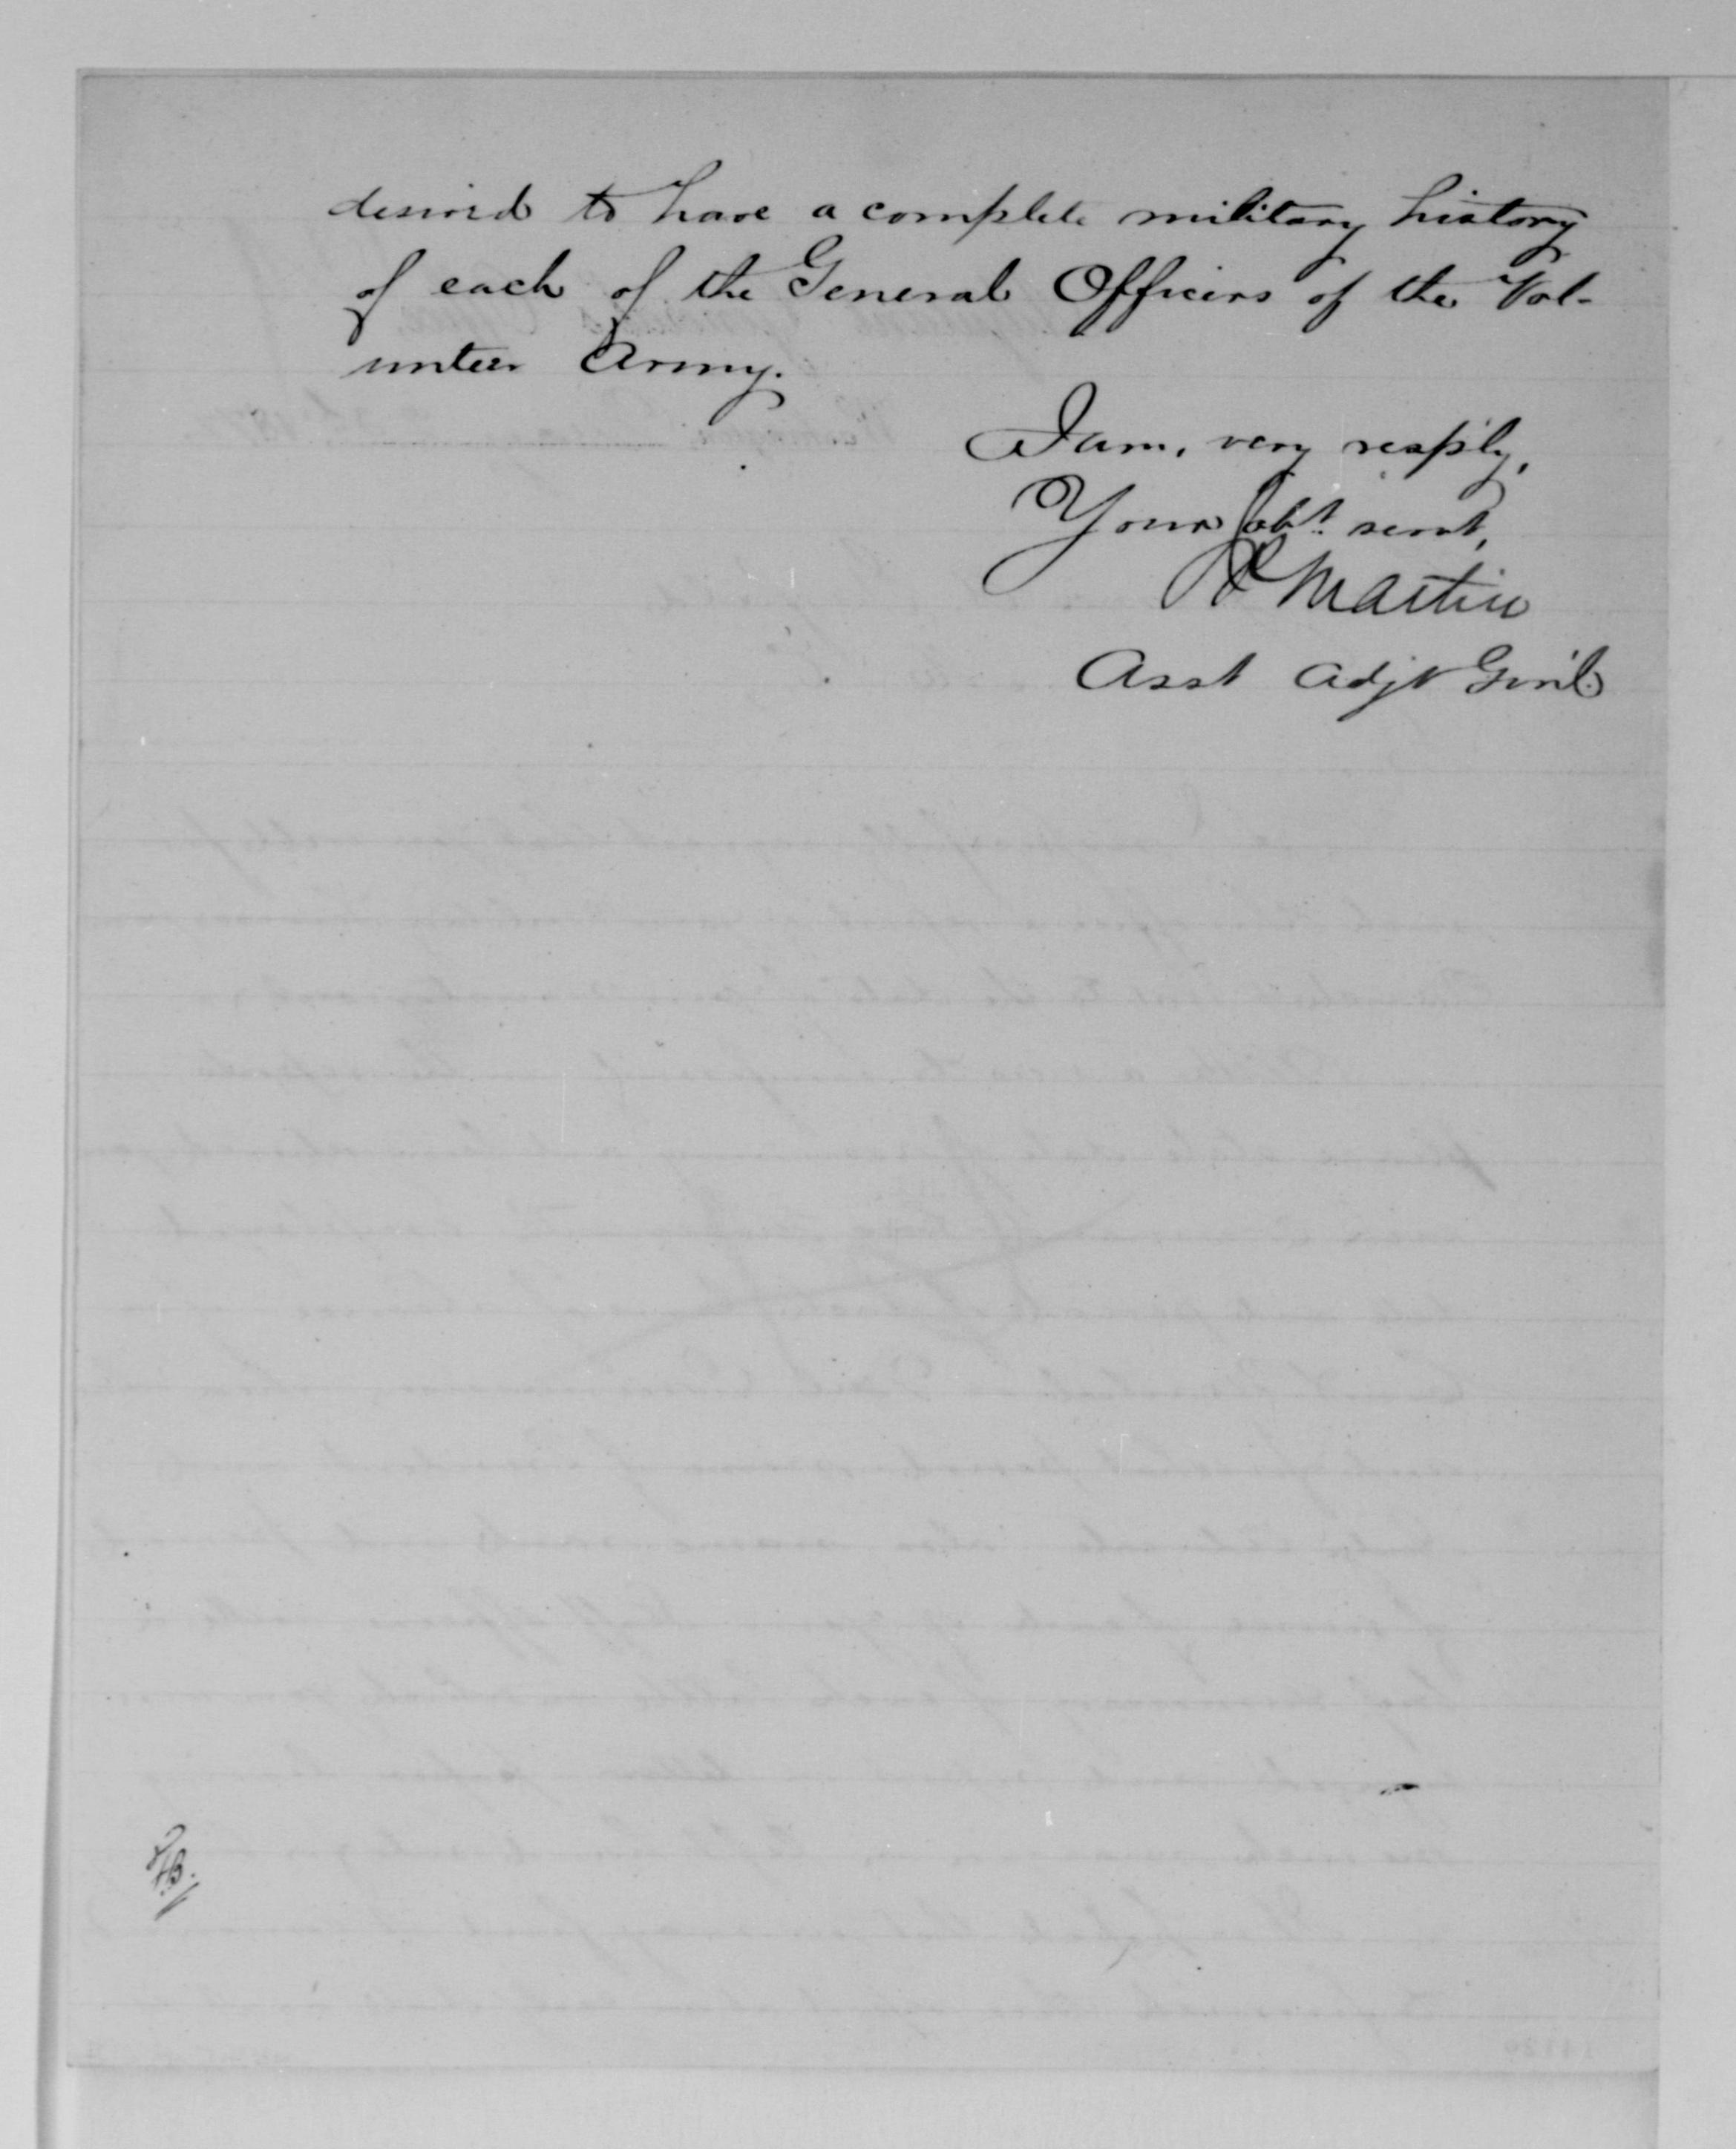 desired to have a complete military history
of each of the General Officers of the Vol-
unteer Army.
I am, very resp'ly,
Your obt. servt,
Martin
Asst Adjt Gen'l.